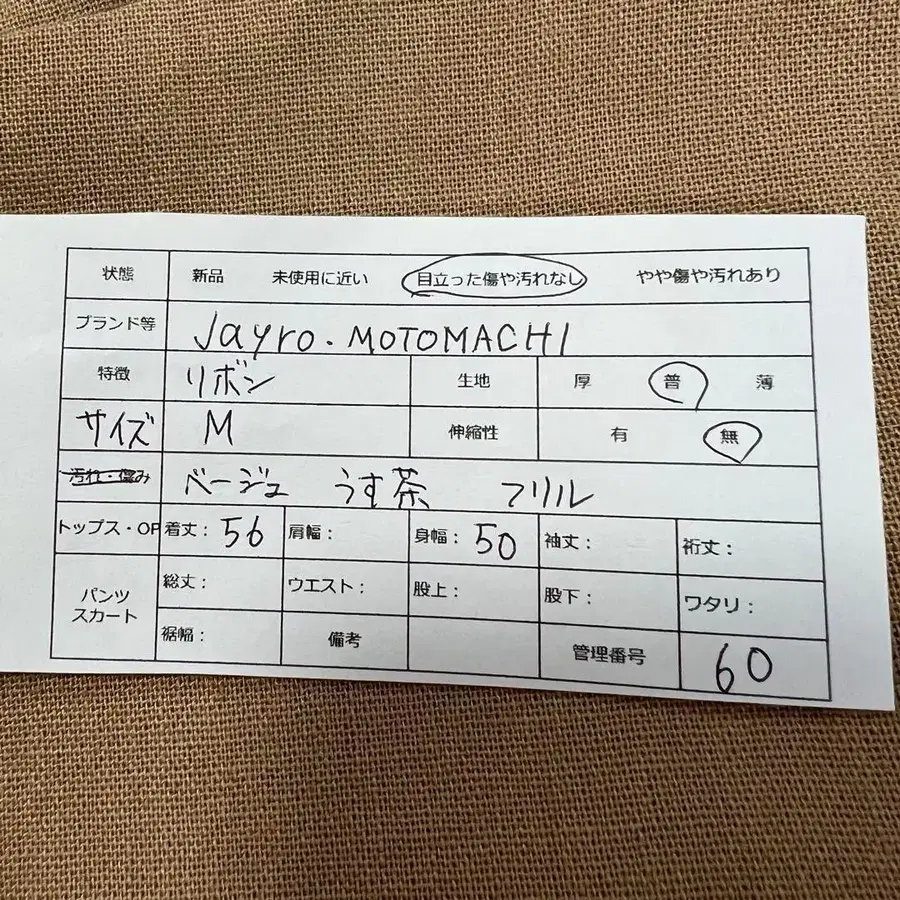 状態 新品 未使用に近い 目立った傷や汚れなし やや傷や汚れあり
ブランド等 Jayro・MOTOMACHI
特徴 リボン 生地 厚 普 薄
サイズ M 伸縮性 有 無
汚れ・傷み ベージュ うす茶 フリル
トップス・OP 着丈: 56 肩幅: 身幅: 50 袖丈: 裄丈:
パンツ スカート 総丈: ウエスト: 股上: 股下: ワタリ:
裾幅: 備考 管理番号 60